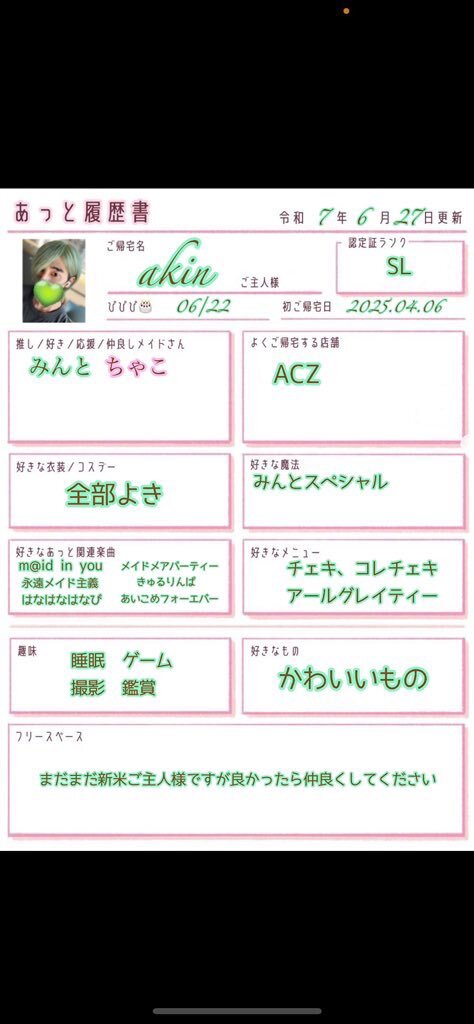 あっと履歴書
令和 7年 6月27日更新
ご帰宅名
akin ご主人様
認定証ランク
SL
びびび 06/22
初ご帰宅日 2025.04.06
推し/好き/応援/仲良しメイドさん
みんと ちゃこ
よくご帰宅する店舗
ACZ
好きな衣装/コスデー
全部よき
好きな魔法
みんとスペシャル
好きなあっと関連楽曲
m@id in you メイドメアパーティー
永遠メイド主義 きゅるりんぱ
はなはなはなぴ あいこめフォーエバー
好きなメニュー
チェキ、コレチェキ
アールグレイティー
趣味
睡眠 ゲーム
撮影 鑑賞
好きなもの
かわいいもの
フリースペース
まだまだ新米ご主人様ですが良かったら仲良くしてください